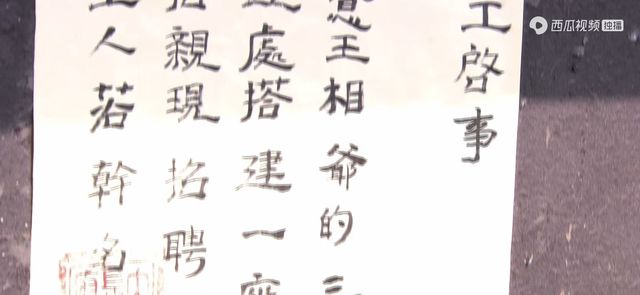 工啓事
意王相爺的三
處搭建一座
招親現招聘
工人若幹名
西瓜视频 独播